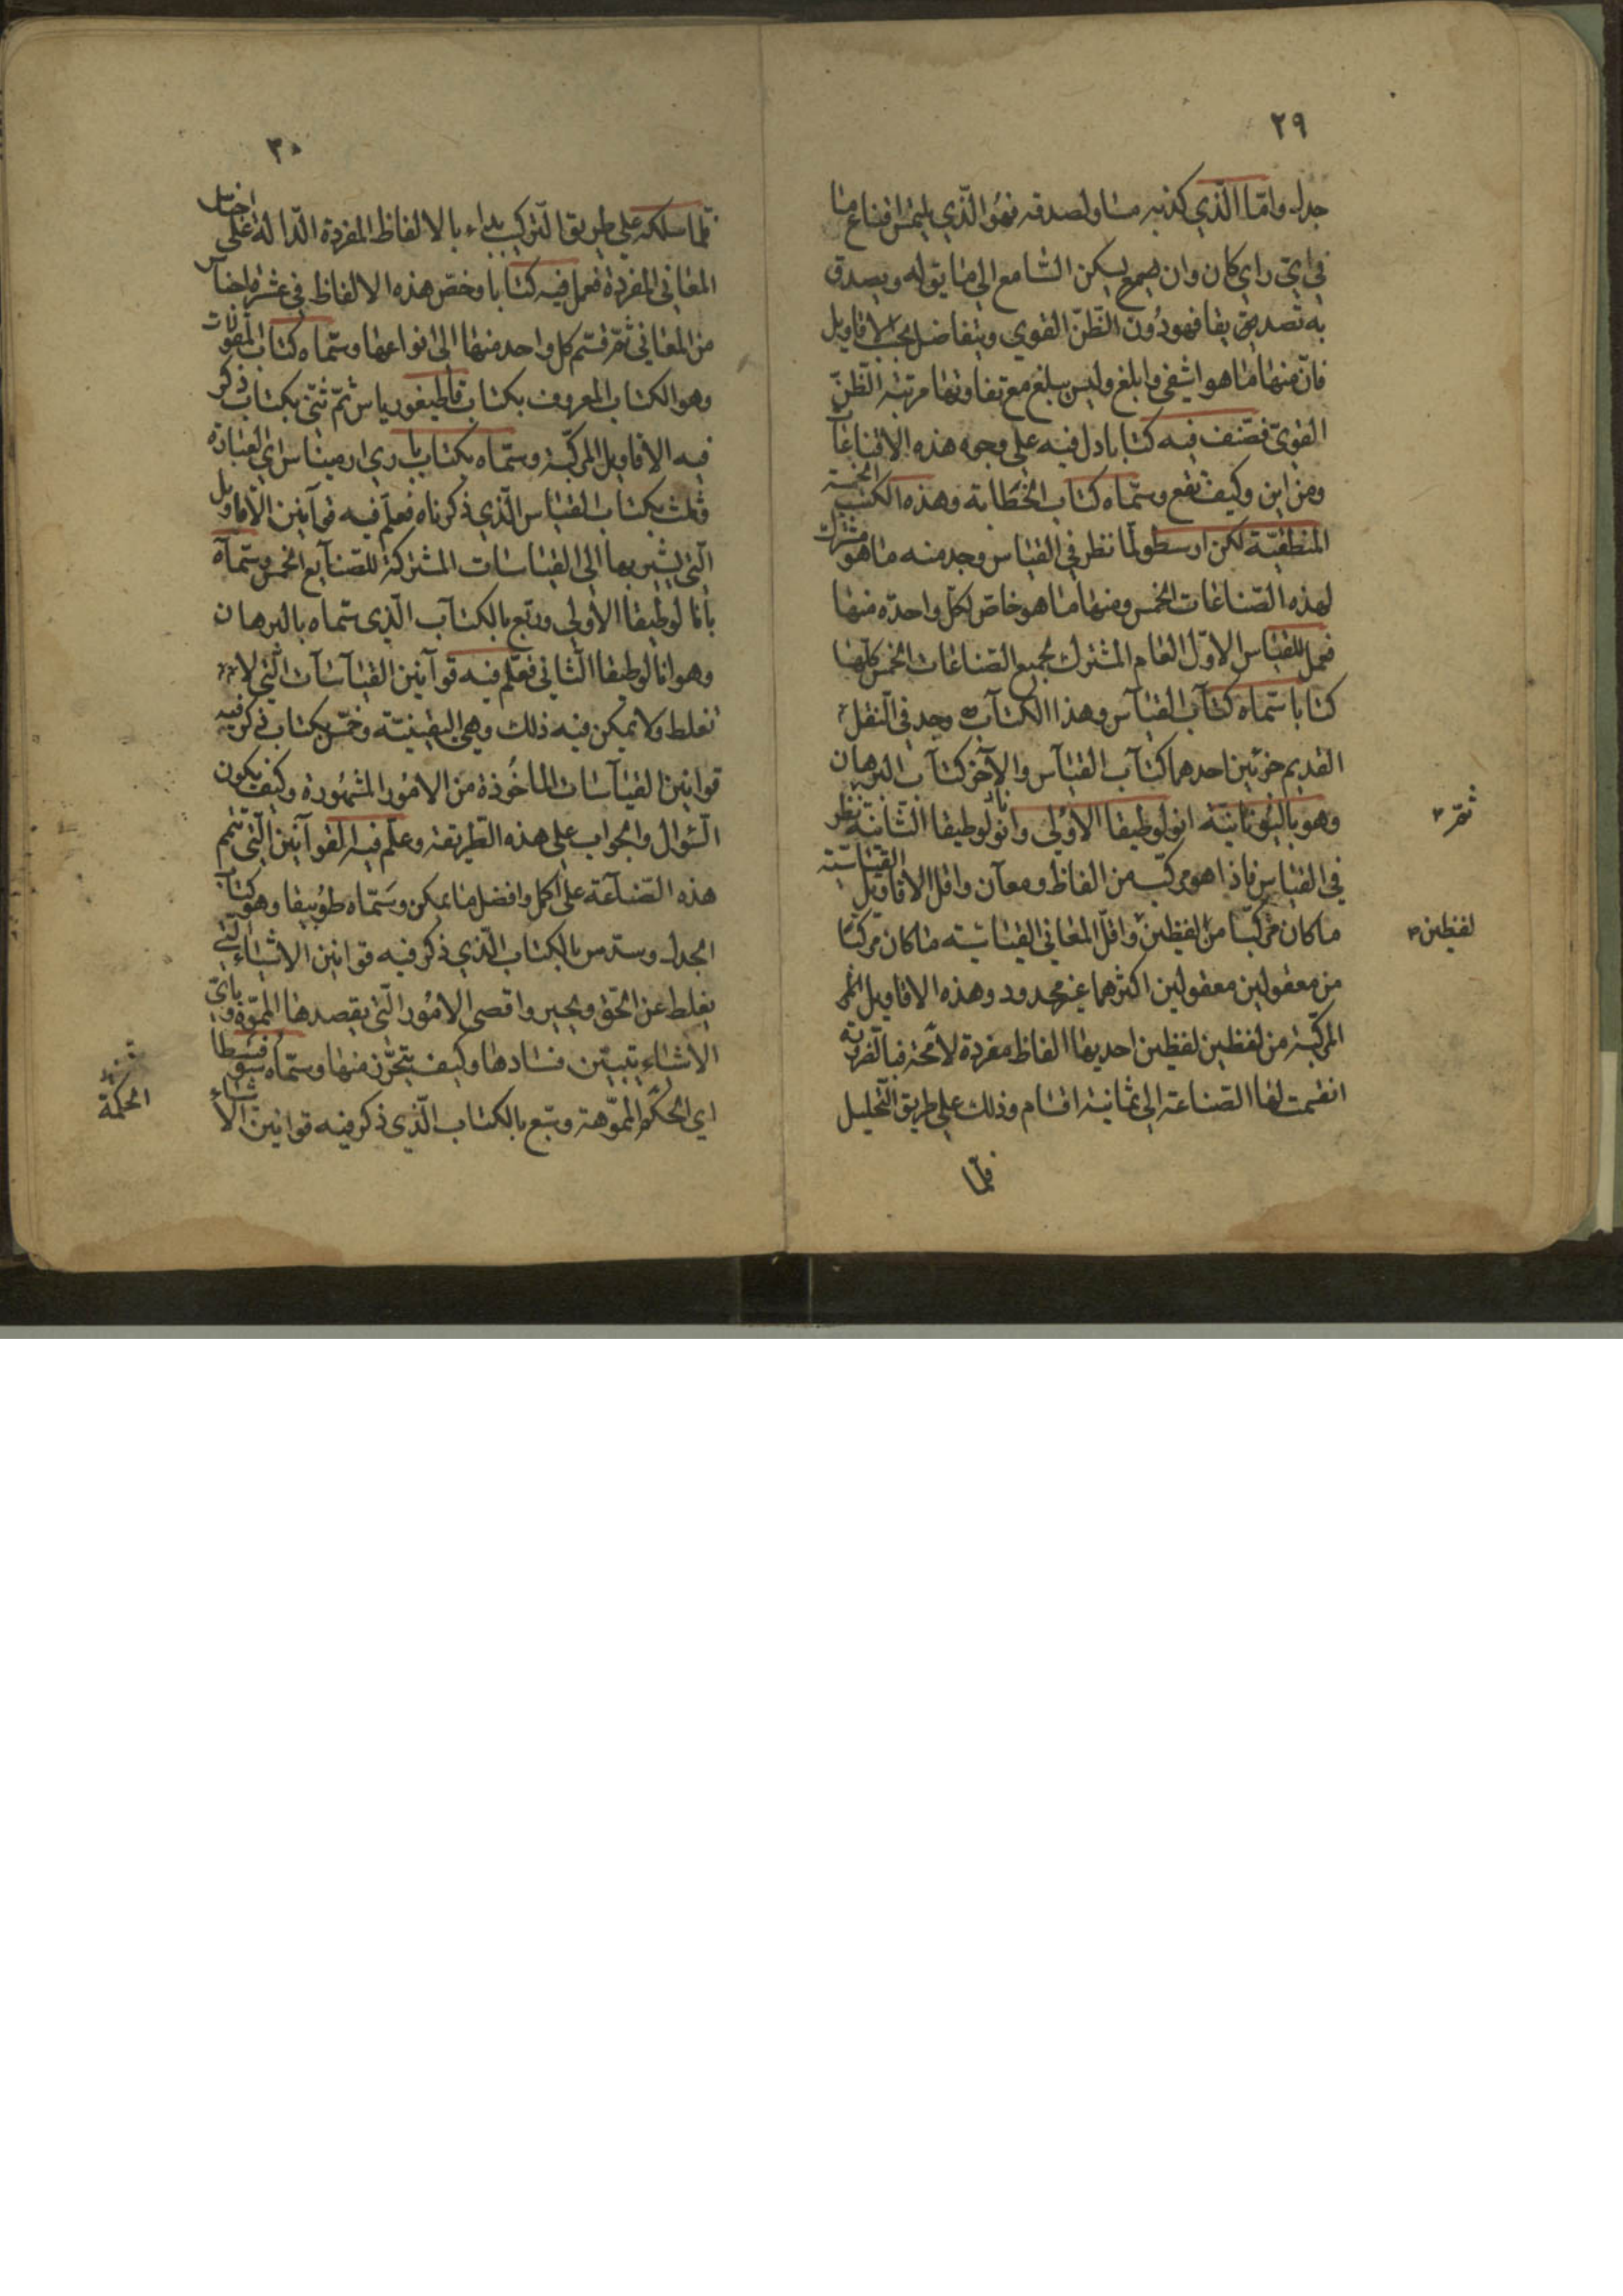 ٢٩
جدل واما الذي كذبه مساو لصدقه فهو الذي يلتمس اقناع ما
في اي راي كان وان يسكن السامع الى ما يقوله ويصدق
به تصديق يقا فهو دون الظن القوي ويتفاضل بحسب الاقاويل
فان منها ما هو اشفى وابلغ وليس يبلغ مع تفاوتها مرتبة الظن
القوي فصنف فيه كتابا دل فيه على وجوه هذه الاقناعات
ومن اين وكيف تقع وسماه كتاب الخطابة وهذه الكتب الخمسة
المنطقية لكن ارسطو لما نظر في القياس وجد منه ما هو مشترك
لهذه الصناعات الخمس ومنها ما هو خاص لكل واحدة منها
فعمل للقياس الاول العام المشترك لجميع الصناعات الخمس كلها
كتابا سماه كتاب القياس وهذا الكتاب وجد في النقل
القديم جزئين احدهما كتاب القياس والآخر كتاب البرهان
وهو باليونانية انولوطيقا الاولى وانولوطيقا الثانية نظر
ثم
في القياس فاذا هو مركب من الفاظ ومعان واقل الاقاويل القياسية
ما كان مركبا من لفظين واقل المعاني القياسية ما كان مركبا
لفظين
من معقولين معقولين اكثرهما غير محدود وهذه الاقاويل
المركبة من لفظين لفظين احديهما الفاظ مفردة لا محة فبالضرورة
انقسمت لها الصناعة الى ثمانية اقسام وذلك على طريق التحليل
فلما
٣٠
فلما سلكه على طريق التركيب بداء بالالفاظ المفردة الدالة على اجناس
المعاني المفردة فعمل فيه كتابا وخص هذه الالفاظ في عشرة اجناس
من المعاني ثم قسم كل واحد منها الى انواعها وسماه كتاب المقولات
وهو الكتاب المعروف بكتاب قاطيغورياس ثم ثنى بكتاب ذكر
فيه الاقاويل المركبة وسماه بكتاب باري ارميناس اي العبارة
وثلث بكتاب القياس الذي ذكرناه فعلم فيه قوانين الاقاويل
التي يشير بها الى القياسات المشتركة للصنايع الخمس وسماه
بانالوطيقا الاولى وربع بالكتاب الذي سماه بالبرهان
وهو انالوطيقا الثاني فعلم فيه قوانين القياسات التي لا
تغلط ولا يمكن فيه ذلك وهي اليقينية وخمس بكتاب ذكر فيه
قوانين القياسات الماخوذة من الامور المشهورة وكيف يكون
السؤال والجواب على هذه الطريقة وعلم فيه القوانين التي تتم
هذه الصناعة على اكمل وافضل ما يمكن وسماه طوبيقا وهو كتاب
الجدل وسدس بالكتاب الذي ذكر فيه قوانين الاشياء التي
يغلط عن الحق ويحير واقصى الامور التي يقصدها المموه وباي
الاشياء يتبين فسادها وكيف يتحرز منها وسماه سوفسطا
اي الحكم المموهة وسبع بالكتاب الذي ذكر فيه قوانين الاشياء
الحكمة